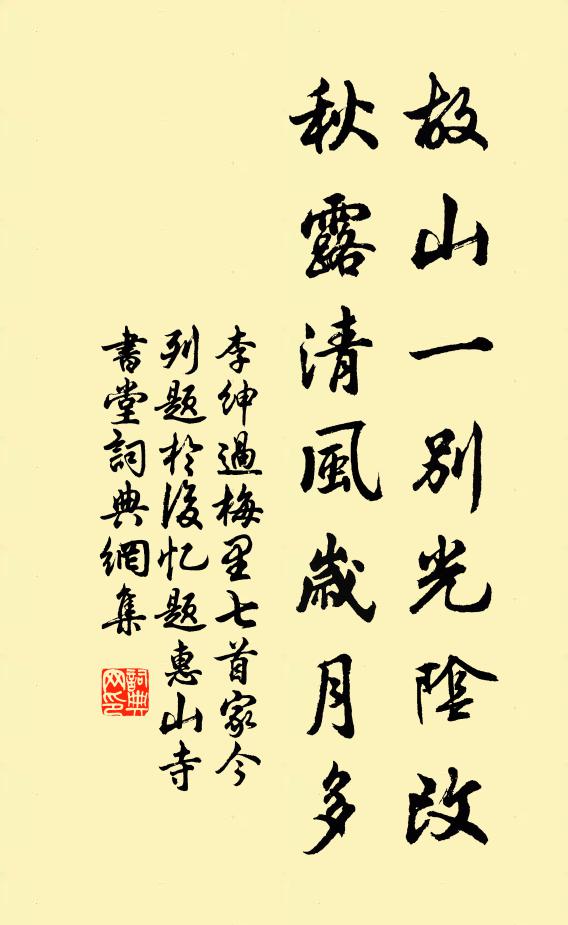 故山一別光陰改
秋露清風歲月多
李紳過梅里七首家今
列題於後忆題惠山寺
書堂詞典網集
詞典网印